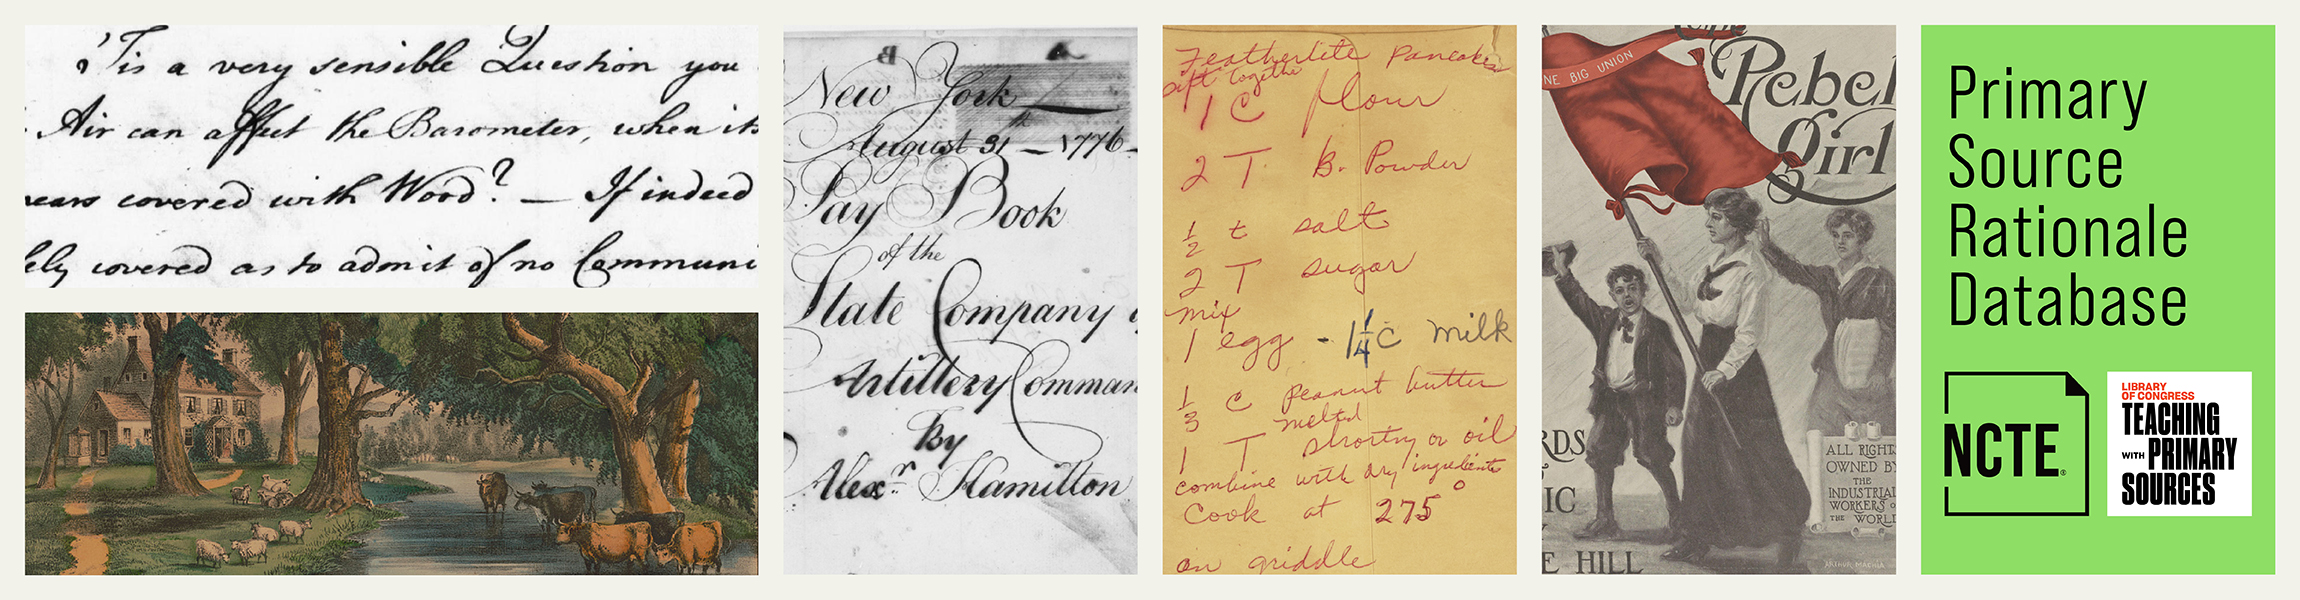 'Tis a very sensible Question you
Air can affect the Barometer, when its
ears covered with Wood? — If indeed
ely covered as to admit of no Communi
New York
August 31st — 1776
Pay Book
of the
State Company
Artillery Comman
By
Alexr Hamilton
Featherlite Pancakes
sift together
1 C flour
2 T B. Powder
1/2 t salt
2 T sugar
mix
1 egg - 1 1/4 C milk
1/3 C peanut butter
melted
1 T shortng or oil
combine with dry ingredients
Cook at 275°
on griddle
NE BIG UNION
Rebel
Girl
RDS
IC
E HILL
ALL RIGHTS
OWNED BY
THE
INDUSTRIAL
WORKERS O
THE WORL
ARTHUR MACHIA
Primary
Source
Rationale
Database
NCTE®
LIBRARY
OF CONGRESS
TEACHING
WITH PRIMARY
SOURCES